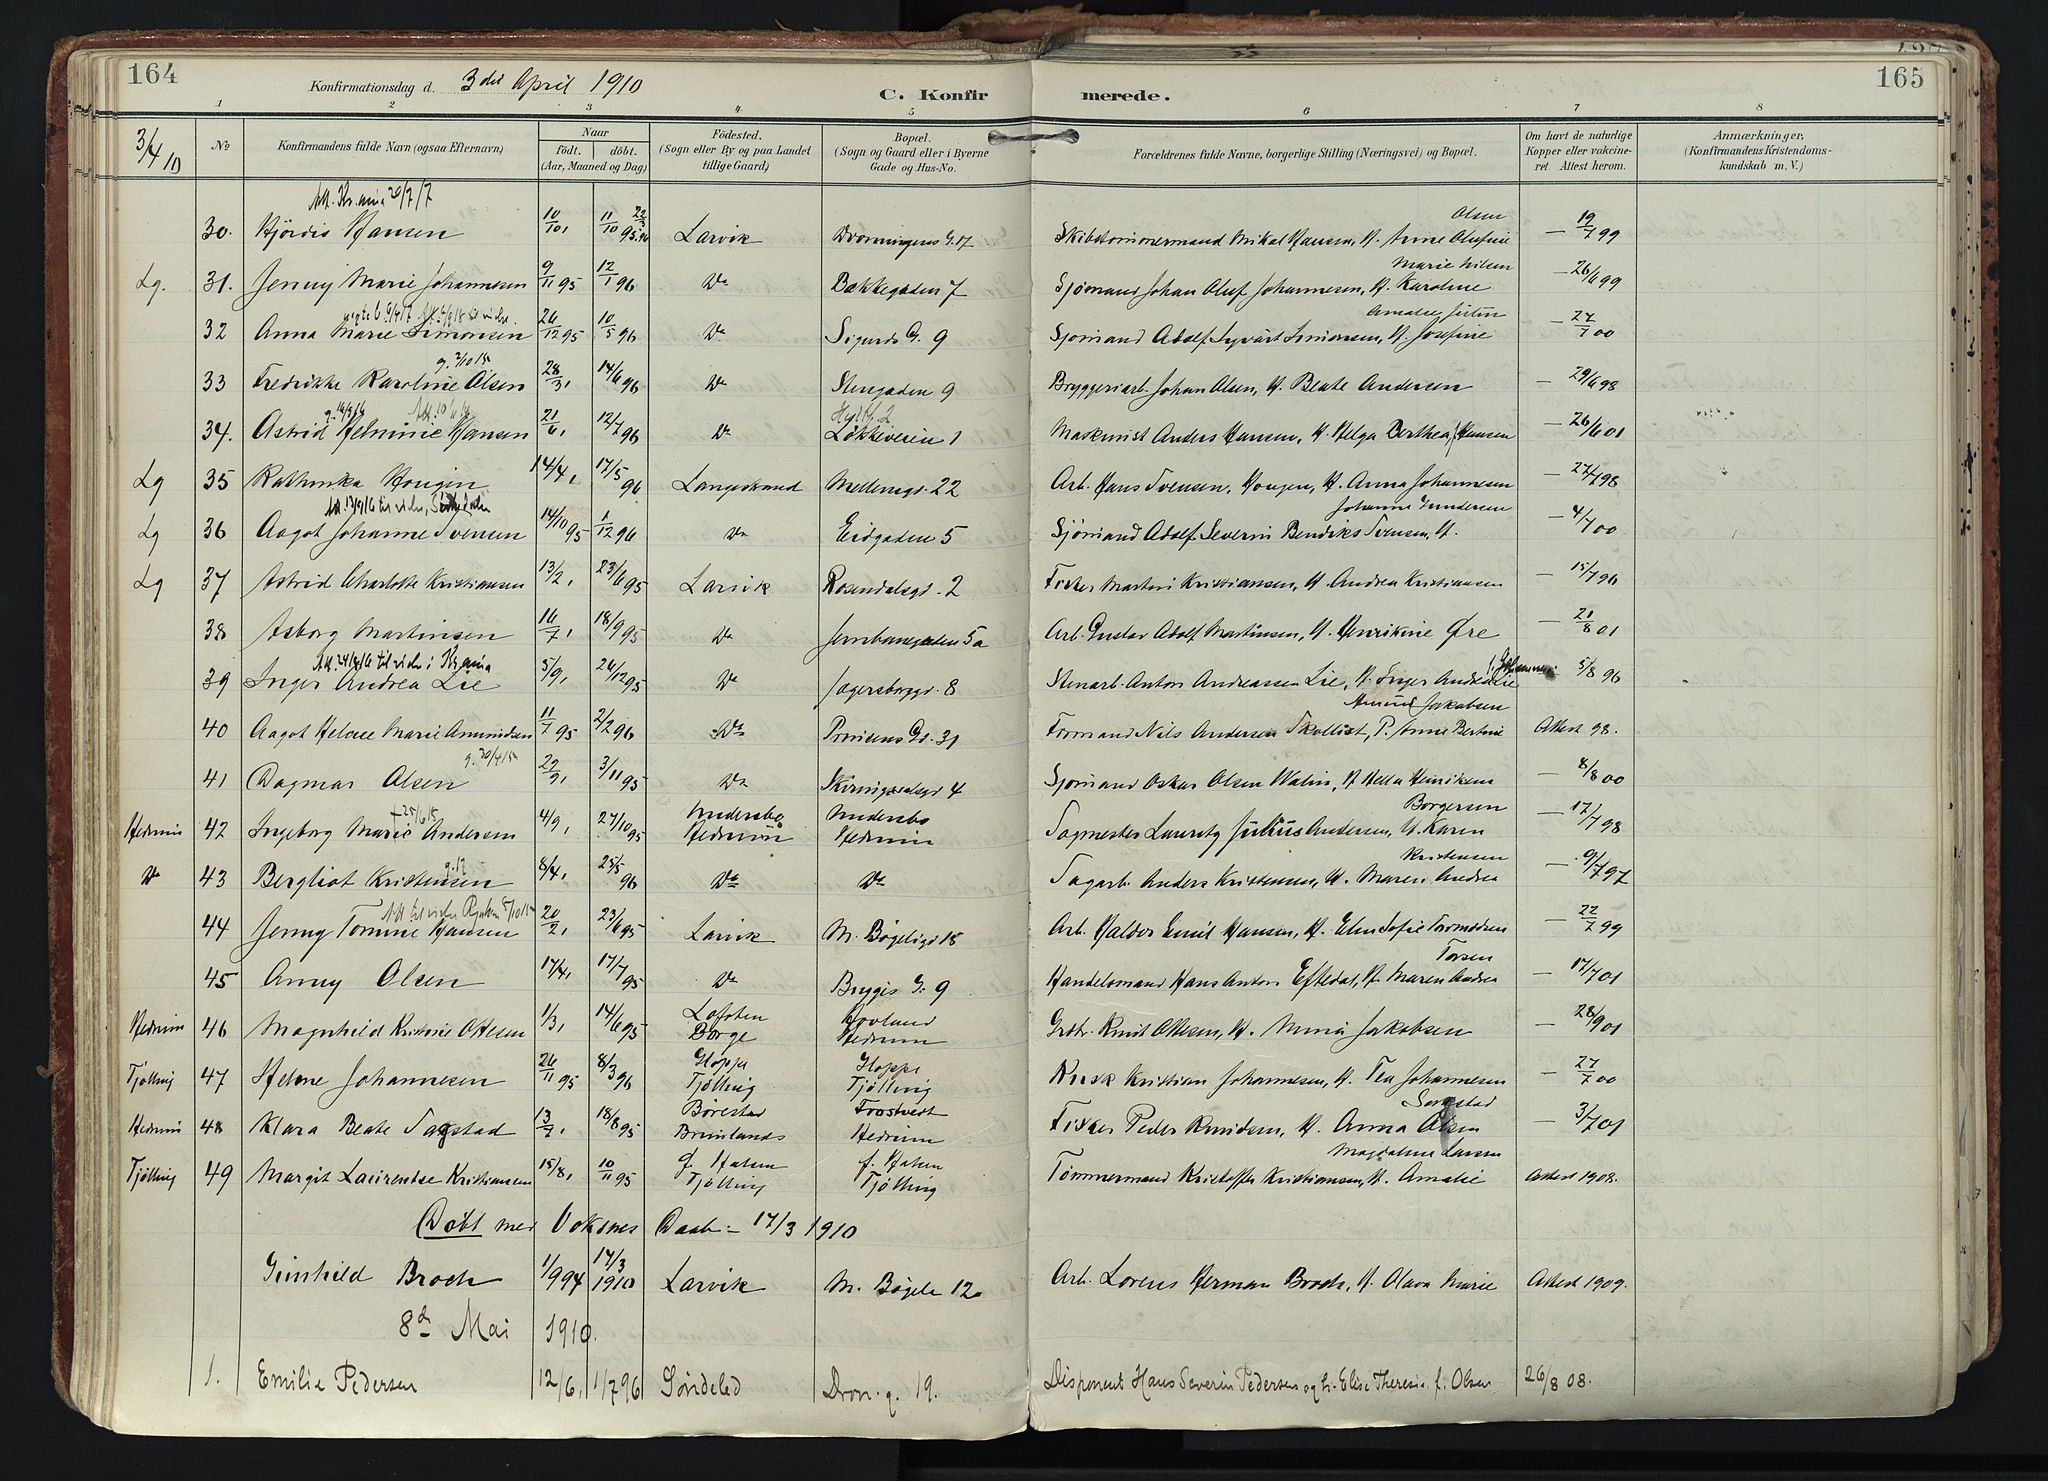 164
Konfirmationsdag d. 3die April 1910
C. Konfirmerede.
165
1 2 3 4 5 6 7 8
3/4 10
No
Konfirmandens fulde Navn (ogsaa Efternavn)
Naar
födt. döbt.
(Aar, Maaned og Dag)
Födested.
(Sogn eller By og paa Landet tillige Gaard)
Bopæl.
(Sogn og Gaard eller i Byerne Gade og Hus-No.
Forældrenes fulde Navne, borgerlige Stilling (Næringsvei) og Bopæl.
Om havt de naturlige Kopper eller vakcineret. Attest herom.
Anmærkninger.
(Konfirmandens Kristendomskundskab m. V.)
30. Hjördis Hansen Larvik Dronningens G. 17 Skibstömmermand Mikal Hansen, H. Anne Olufine Olsen — 19/7 99
Lg. 31. Jenny Marie Johannesen 9/11 95 12/1 96 Do Bakkegaden 7 Sjömand Johan Oluf Johannesen, H. Karoline Marie Nilsen — 26/6 99
32 Anna Marie Simonsen 26/12 95 10/5 96 Do Sigurds G. 9 Sjömand Adolf Sigvart Simonsen, H. Josefine Amalie — 27/7 00
33 Fredrikke Karoline Olsen 28/3, 14/6 96 Do Stengaden 9 Bryggeriarb. Johan Olsen, H. Beate Andersen — 29/6 98
34. Astrid Helmine Hansen 21/6, 12/7 96 Do Løkkeveien 1 Maskinist Anders Hansen, H. Helga Berthea Hansen — 26/6 01
Lg 35 Kathinka Hougen 14/4, 17/5 96 Langestrand Mellemgd. 22 Arb. Hans Svensen Hougen, H. Anna Johannesen — 27/7 98
Lg 36 Aagot Johanne Svensen 14/10 95 1/12 96 Do Eidgaden 5 Sjömand Adolf Severin Bendiks Svensen, H. Johanne Gundersen — 4/7 00
Lg 37 Astrid Charlotte Kristiansen 13/2, 23/6 95 Larvik Rosendalsgd. 2 Fisker Martin Kristiansen, H. Andrea Kristiansen — 15/7 96
38 Asborg Martinsen 16/7, 18/9 95 Do Jernbanegaden 5a Arb. Gustav Adolf Martinsen, H. Henrikine Øre — 21/8 01
39 Inger Andrea Lie 5/9, 26/12 95 Do Jegersborggd. 8 Stenarb. Anton Andreassen Lie, H. Inger Andrea Lie 5/8 96
40 Aagot Helene Marie Amundsen 11/7 95 2/2 96 Do Prinsens Gd. 31 Formand Nils Andersen Skollist, P. Anne Bertine Jakobsen Attest 98.
41 Dagmar Olsen 29/9, 3/11 95 Do Skiringssalsgd 4 Sjömand Oskar Olsen Walin, H. Hella Henriksen — 8/8 00
Hedrum 42 Ingeborg Marie Andersen 4/9, 27/10 95 Andersbo Hedrum Andersbo Hedrum Sagmester Lauritz Julius Andersen, H. Karen Borgersen — 17/7 98
Do 43 Bergliot Kristensen 8/4, 25/5 96 Do Do Sagarb. Anders Kristensen, H. Maren Andrea Kristensen — 9/7 97
44 Jenny Tomine Hansen 20/2, 23/6 95 Larvik M. Bögeligd 15 Arb. Haldor Emil Hansen, H. Elen Sofie Tormodsen — 22/7 99
45 Anny Olsen 17/4, 17/7 95 Do Bryggis G. 9 Handelsmand Hans Anton Eftedal, H. Maren Andrea Torsen — 17/7 01
Hedrum 46 Magnhild Kristine Ottesen 1/3, 14/6 95 Lofsten Borge Hovland Hedrum Grdbr. Knut Ottesen, H. Mina Jakobsen — 28/9 01
Tjölling 47 Helene Johannesen 26/11 95 8/3 96 Hoppe Tjölling Hoppe Tjölling Kusk Kristian Johannesen, H. Tea Johannesen — 27/7 00
Hedrum 48 Klara Beate Sagstad 13/7, 18/8 95 Börestad Brunlanes Frostvedt Hedrum Fisker Peder Knudsen, H. Anna Olsen — 3/7 01
Tjölling 49 Margit Laurentse Kristiansen 15/8, 10/11 95 f. Halsen Tjölling f. Halsen Tjölling Tömmermand Kristoffer Kristiansen, H. Amalie Magdalene Larsen Attest 1908.
Döbt med Voksnes Daab - 17/3 1910
Gunhild Broch 1/9 94 17/3 1910 Larvik M. Bögeli 12a Arb. Lorens Herman Broch, H. Olava Marie Attest 1909.
8de Mai 1910.
1. Emilie Pedersen 12/6, 1/7 96 Söndeled Dron.g. 19. Disponent Hans Severin Pedersen og H. Elise Therese f. Olsen 26/8 08.